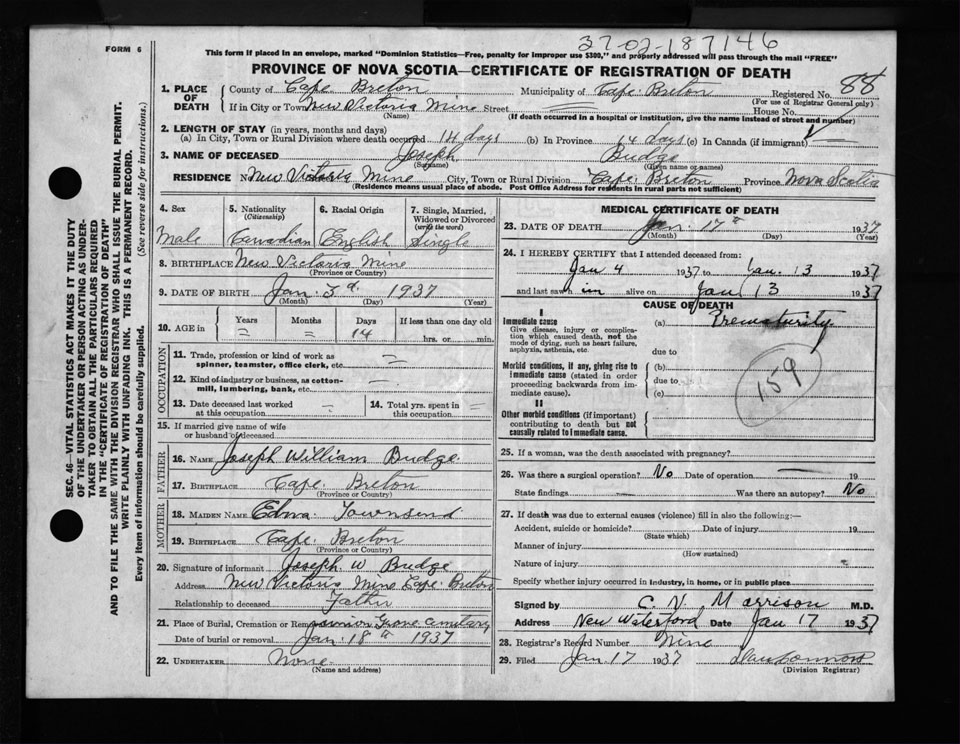 37-02-187146
FORM 6
This form if placed in an envelope, marked "Dominion Statistics—Free, penalty for improper use $300," and properly addressed will pass through the mail "FREE"
PROVINCE OF NOVA SCOTIA—CERTIFICATE OF REGISTRATION OF DEATH
1. PLACE OF DEATH County of Cape Breton Municipality of Cape Breton Registered No. 88
(For use of Registrar General only)
If in City or Town New Victoria Mine Street House No.
(Name) (If death occurred in a hospital or institution, give the name instead of street and number)
2. LENGTH OF STAY (in years, months and days)
(a) In City, Town or Rural Division where death occurred 14 days (b) In Province 14 days (c) In Canada (if immigrant) —
3. NAME OF DECEASED Joseph Budge
(Surname) (Given name or names)
RESIDENCE N New Victoria Mine City, Town or Rural Division Cape Breton Province Nova Scotia
(Residence means usual place of abode. Post Office Address for residents in rural parts not sufficient)
4. Sex Male
5. Nationality (Citizenship) Canadian
6. Racial Origin English
7. Single, Married, Widowed or Divorced (write the word) Single
8. BIRTHPLACE New Victoria Mine
(Province or Country)
9. DATE OF BIRTH Jan. 3rd 1937
(Month) (Day) (Year)
10. AGE in Years = Months = Days 14 If less than one day old
hrs. or min.
OCCUPATION
11. Trade, profession or kind of work as spinner, teamster, office clerk, etc. =
12. Kind of industry or business, as cotton-mill, lumbering, bank, etc. —
13. Date deceased last worked at this occupation =
14. Total yrs. spent in this occupation =
15. If married give name of wife or husband of deceased
FATHER
16. NAME Joseph William Budge
17. BIRTHPLACE Cape Breton
(Province or Country)
MOTHER
18. MAIDEN NAME Edna Townsend
19. BIRTHPLACE Cape Breton
(Province or Country)
20. Signature of informant Joseph W Budge
Address New Victoria Mine Cape Breton
Relationship to deceased Father
21. Place of Burial, Cremation or Removal Grove Cemetary
Date of burial or removal Jan. 18th 1937
22. UNDERTAKER None
(Name and address)
MEDICAL CERTIFICATE OF DEATH
23. DATE OF DEATH Jan. 17th 1937
(Month) (Day) (Year)
24. I HEREBY CERTIFY that I attended deceased from:
Jan 4 1937 to Jan. 13 1937
and last saw him alive on Jan 13 1937
CAUSE OF DEATH
I
Immediate cause (a) Prematurity
Give disease, injury or complication which caused death, not the mode of dying, such as heart failure, asphyxia, asthenia, etc. due to
Morbid conditions, if any, giving rise to immediate cause (stated in order proceeding backwards from immediate cause). (b)
due to
(c)
159
II
Other morbid conditions (if important) contributing to death but not causally related to immediate cause.
25. If a woman, was the death associated with pregnancy?
26. Was there a surgical operation? No Date of operation — 19
State findings — Was there an autopsy? No
27. If death was due to external causes (violence) fill in also the following:—
Accident, suicide or homicide? Date of injury 19
(State which)
Manner of injury
(How sustained)
Nature of injury
Specify whether injury occurred in industry, in home, or in public place
Signed by C. V. Morrison M.D.
Address New Waterford Date Jan 17 1937
28. Registrar's Record Number Nine
29. Filed Jan 17 1937
(Division Registrar)
SEC. 46—VITAL STATISTICS ACT MAKES IT THE DUTY
OF THE UNDERTAKER OR PERSON ACTING AS UNDER-
TAKER TO OBTAIN ALL THE PARTICULARS REQUIRED
IN THE "CERTIFICATE OF REGISTRATION OF DEATH"
AND TO FILE THE SAME WITH THE DIVISION REGISTRAR WHO SHALL ISSUE THE BURIAL PERMIT.
WRITE PLAINLY WITH UNFADING INK. THIS IS A PERMANENT RECORD.
Every item of information should be carefully supplied. (See reverse side for instructions.)